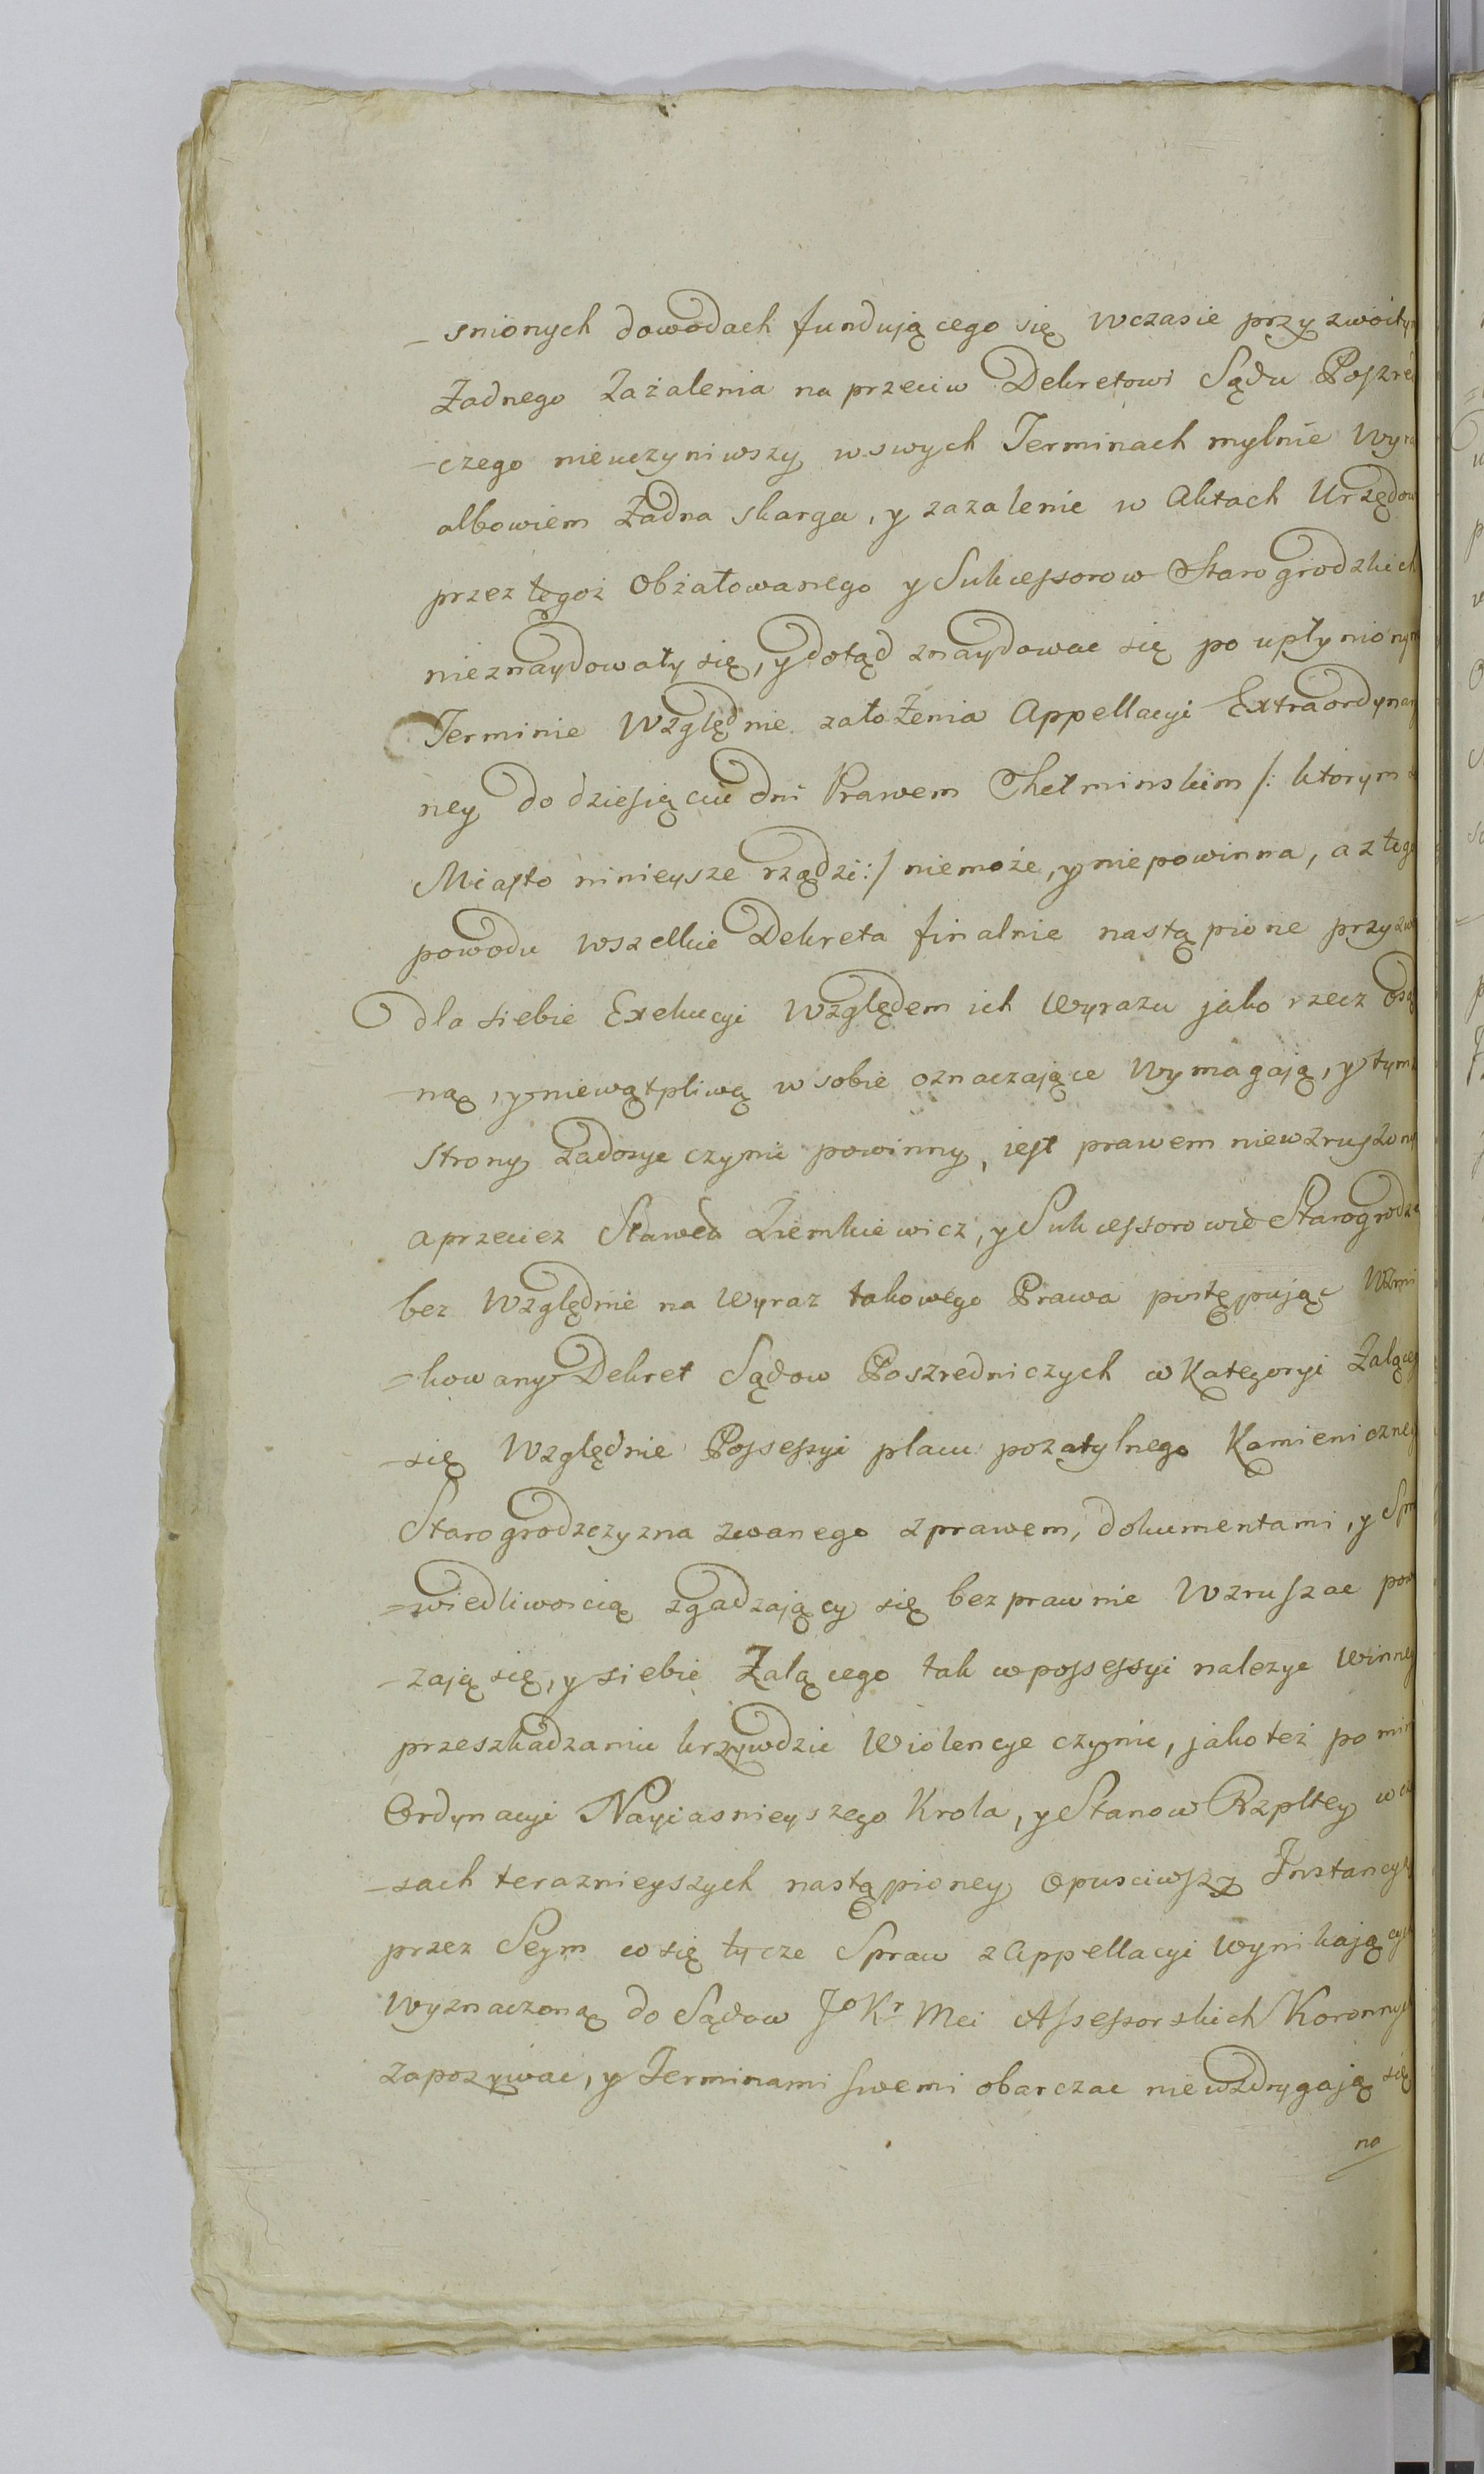 -snionych dowodach fundującego się wczasie przyzwoity
Żadnego Zażalenia na przeciw Dekretowi Sądu Poszred
-czego nieuczyniwszy w swych Terminach mylnie Wyra
albowiem Żadna skarga, y zazalenie w Aktach Urzędow
przez tegoż Obżałowanego y Sukcessorow Starogrodzkich
nieznaydowały się, y dotąd znaydowac się po upłynionym
Terminie Względnie założenia Appellacyi Extraordynary
ney do dziesiąciu dni Prawem Chełminskim /: ktorym
Miasto ninieysze rządzi :/ niemoże, y niepowinna, a z tego
powodu wszelkie Dekreta finalnie nastąpione przyzw
dla siebie Exekucyi Względem ich Wyrazu jako rzecz Osą
-ną, y niewątpliwą w sobie oznaczające Wymagają, y tym
Strony Zadosyc czynic powinny, jest prawem niewzruszon
aprzeciez Sławet Ziemkiewicz, y Sukcessorowie Starogrodzc
bez Względnie na Wyraz takowego Prawa postępując Wzmi
=kowany Dekret Sądow Poszredniczych w Kategoryi Żalącego
-się Względnie Possessyi placu pozatylnego Kamieniczneg
Starogrodzczyzna zwanego z prawem, dokumentami, y Spra
=wiedliwoscią zgadzający się bezprawnie Wzruszac powa
-zają się, y siebie Żalącego tak w possessyi nalezyc Winney
przeszkadzaniu krzywdzic Wiolencye czynic, jako też pomin
Ordynacyi Nayiasnieyszego Krola, y Stanow Rzpltey w cza
-sach teraznieyszych nastąpioney Opusciwszy Instancyą
przez Seym co się tycze Spraw z Appellacyi Wynikających
Wyznaczoną do Sądow Jo Kr Mci Assessorskich Koronnych
Zapozywac, y Terminami swemi obarczac niewzdrygają się
no